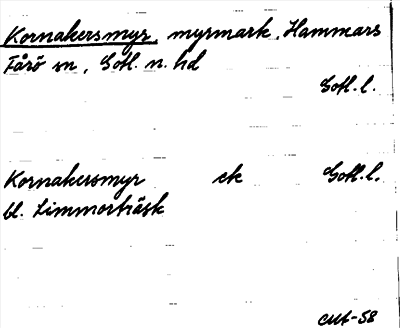 Kornakersmyr, myrmark, Hammars
Fårö sn, Gotl. n. hd
Gotl. l.
Kornakersmyr ek Gotl. l.
bl. Limmorträsk